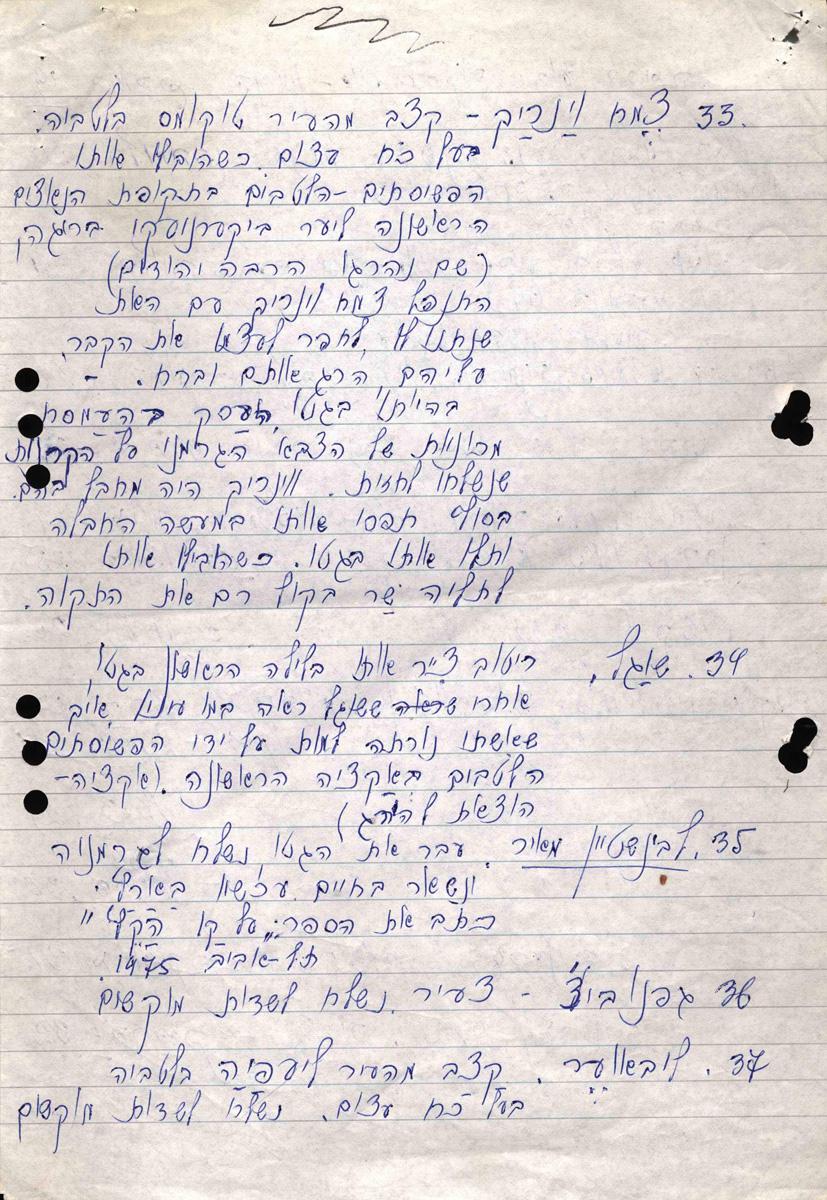 33. צמח וינריק - קצב מהעיר טוקומס בלטביה.
בעל כח עצום. כשהובילו אותו
הפשיסתים-הלטבים בתקופת הנאצים
הראשונה ליער ביקרנועקי ברוגהק
(שם נהרגו הרבה יהודים)
התנפל צמח וינריק עם האת
שנתנו לו לחפר לעצמו את הקבר,
עליהם, הרג אותם וברח. -
בהיותו בגטו, העסק בהעמסת
מכונות של הצבא הגרמני על הקרנות
שנשלחו לחזית. וינריק היה מחבל בהם.
בסוף תפסו אותו במעשה החבלה
ותלו אותו בגטו. כשהובילו אותו
לתליה שר בקול רם את התקוה.
34. שאגל, היטוב צייר אותו בלילה הראשון בגטו,
אחרי ששאגל ראה במו עיניו, איך
שאשתו נורתה למות על ידי הפשיסתים
הלטבים באקציה הראשונה. (אקציה-
הוצאת להורג)
35. לבינשטיין מאיר. עבר את הגטו, נשלח לגרמניה
ונשאר בחיים. עכשו בארץ.
כתב את הספר "על קו הקץ"
תל-אביב 1975.
36 גפנוביץ' - צעיר. נשלח לשדות מוקשים
37. ליבאווער. קצב מהעיר ליעפיה בלטביה
בעל כח עצום. נשלח לשדות מוקשים